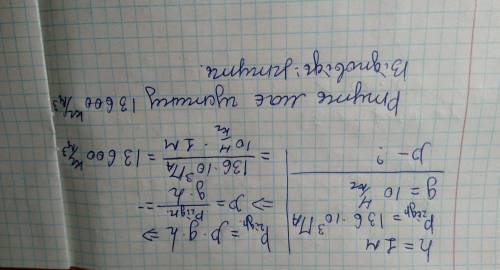 h = 1 м
Pгідр. = 136 · 10³ Па
g = 10 Н/кг
ρ - ?
Pгідр. = ρ · g · h ⇒
⇒ ρ = Pгідр. / g · h =
= 136 · 10³ Па / 10 Н/кг · 1 м = 13 600 кг/м³
Ртуть має густину 13 600 кг/м³
Відповідь: ртуть.